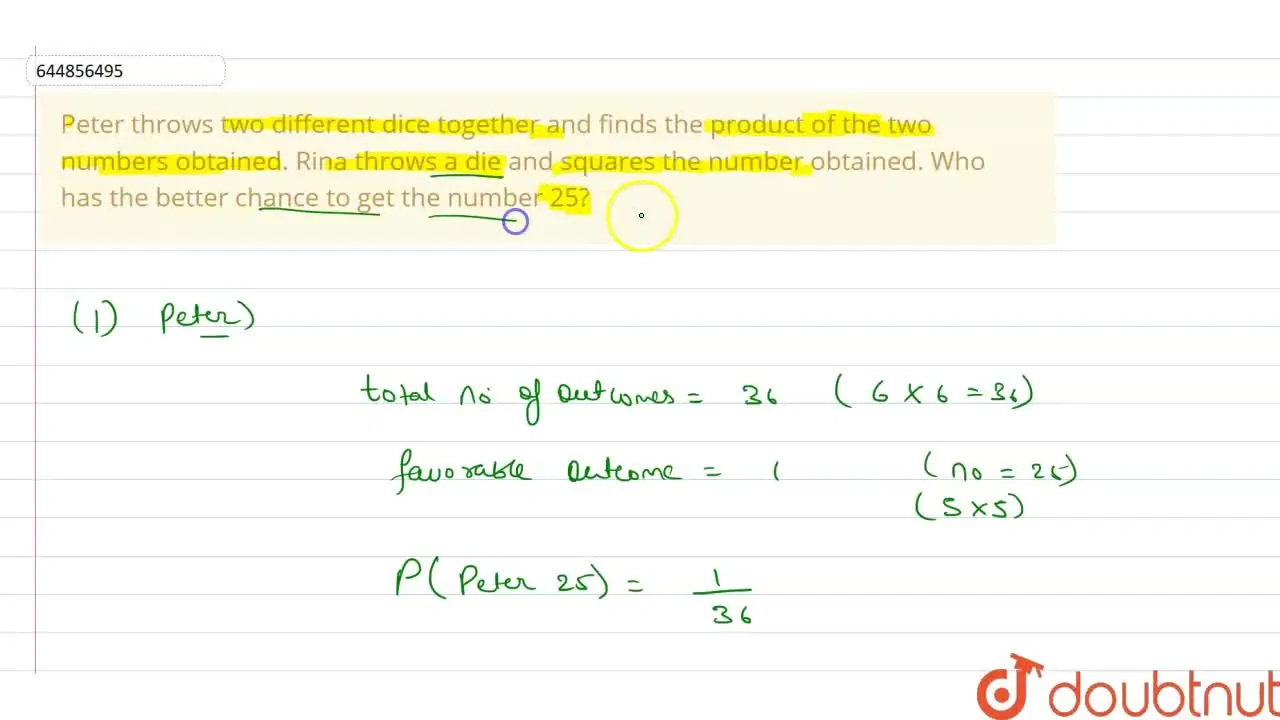 644856495
Peter throws two different dice together and finds the product of the two
numbers obtained. Rina throws a die and squares the number obtained. Who
has the better chance to get the number 25?
(1) Peter)
total no of outcomes = 36 ( 6 × 6 = 36)
favorable outcome = 1 ( no = 25)
( 5 × 5)
P( Peter 25) = 1/36
doubtnut